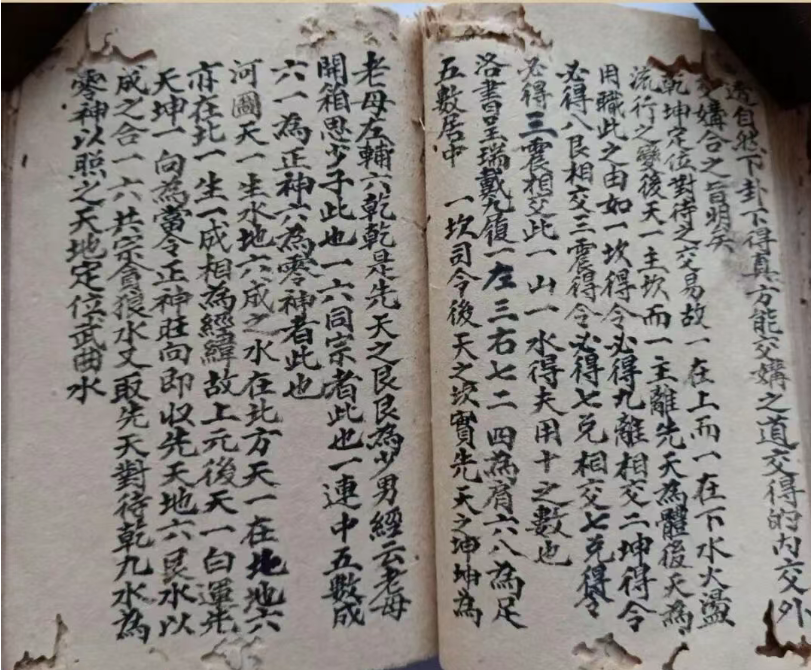 透自然下卦不得真方能交媾之道交得的內交外
交媾合之旨明矣
乾坤定位對待之交易故一在上而一在下水火濕
流行之變後天一主坎而一主離先天為體後天為
用職此之由如一坎得令必得九離相交二坤得令
必得八艮相交三震得令必得七兌相交七兌得令
必得三震相交此一山一水得夫用十之數也
洛書呈瑞戴九履一左三右七二四為肩六八為足
五數居中 一坎司令後天之坎實先天之坤坤為
老母左輔六乾乾是先天之艮艮為少男經云老母
開箱思少子此也一六同宗者此也一連中五數成
六一為正神六為零神者此也
河圖天一生水地六成之水在北方天一在地地六
亦在北一生一成相為經緯故上元後天一白運先
天坤一向為當令正神旺向即收先天地六艮水以
成之合一六共宗貪狼水又取先天對待乾九水為
零神以照之天地定位武曲水